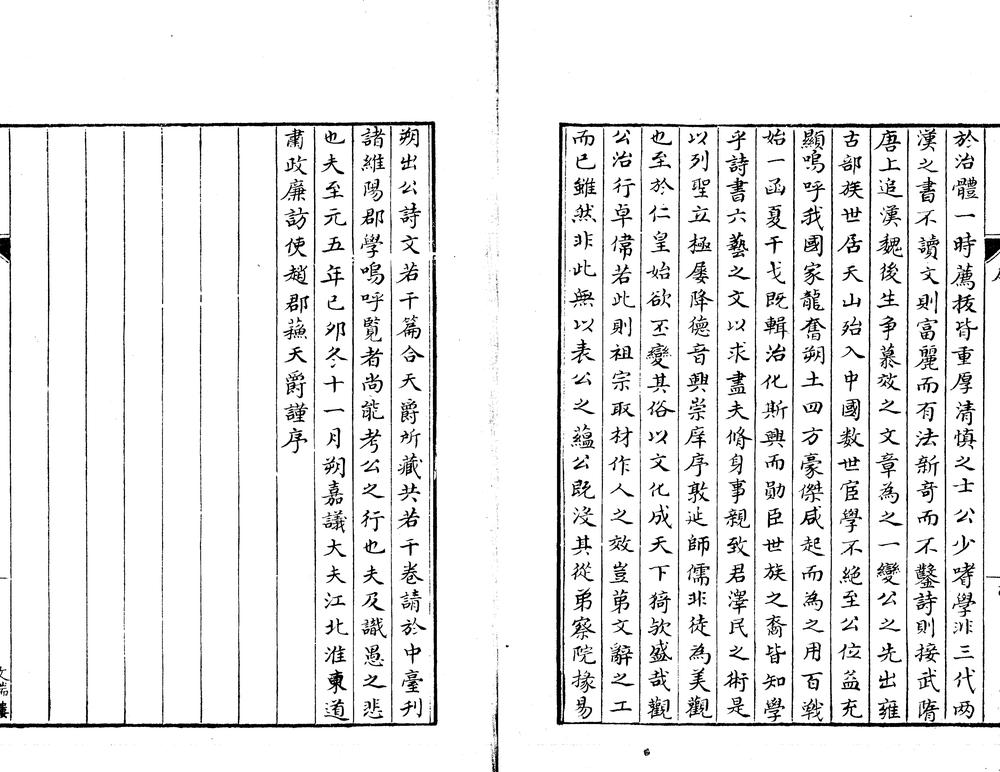 於治體一時薦拔皆重厚清慎之士公少嗜學非三代兩
漢之書不讀文則富麗而有法新奇而不鑿詩則接武隋
唐上追漢魏後生爭慕效之文章為之一變公之先出雍
古部族世居天山殆入中國數世宦學不絕至公位益充
顯嗚呼我國家龍奮朔土四方豪傑咸起而為之用百戰
始一函夏干戈既輯治化斯興而勛臣世族之裔皆知學
乎詩書六藝之文以求盡夫脩身事親致君澤民之術是
以列聖立極屢降德音興崇庠序敦延師儒非徒為美觀
也至於仁皇始欲丕變其俗以文化成天下猗歟盛哉觀
公治行卓偉若此則祖宗取材作人之效豈第文辭之工
而已雖然非此無以表公之蘊公既沒其從弟察院掾易
朔出公詩文若干篇合天爵所藏共若干卷請於中臺刊
諸維陽郡學嗚呼覧者尚能考公之行也夫及識愚之悲
也夫至元五年己夘冬十一月朔嘉議大夫江北淮東道
肅政廉訪使趙郡蘓天爵謹序
文瑞樓